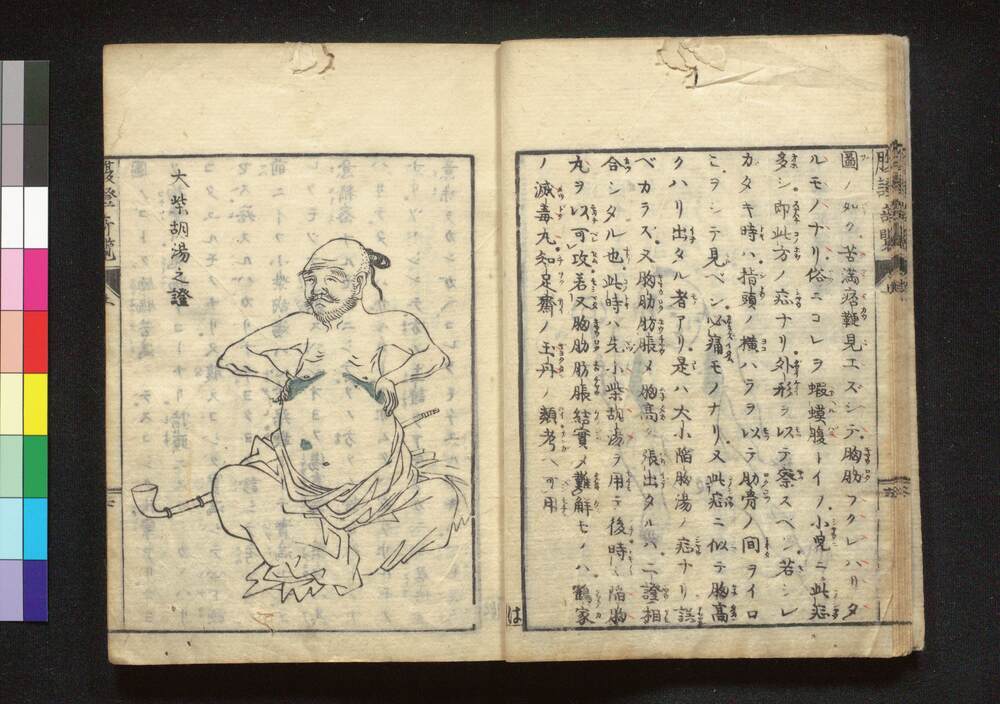 圖ノ如ク苦滿痞鞕見エズシテ胸脇フクレハリタ
ルモノナリ俗ニコレヲ蝦蟆腹トイフ小兒ニ此症
多シ即此方ノ症ナリ外形ヲ以テ察スベシ若シレ
カタキ時ハ指頭ノ横ハラヲ以テ肋骨ノ間ヲイロ
ヒテ見ベシ必痛モノナリ又此症ニ似テ胸高
クハリ出タル者アリ是ハ大小陷胸湯ノ症ナリ誤
ベカラズ又胸肋肪脹メ胸高ク張出タルハ二證相
合シタル也此時ハ先小柴胡湯ヲ用テ後時々陷胸
丸ヲ以可攻若又胸肋肪脹結實メ難解モノハ鶴家
ノ滅毒丸知足齋ノ玉丹ノ類考ヘ可用
は
大柴胡湯之證